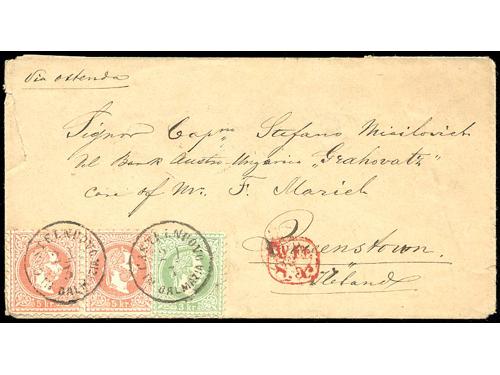 Via Ostenda
Signor Capm Stefano Misilovich
Al Bark Austro-Ungarico „Grahovatz"
care of Mr. F. Marich
Queenstown
Irland
CASTELNUOVO
IN DALMATIA
CASTELNUOVO
IN DALMATIA
5 kr. 5 kr. 3 kr.